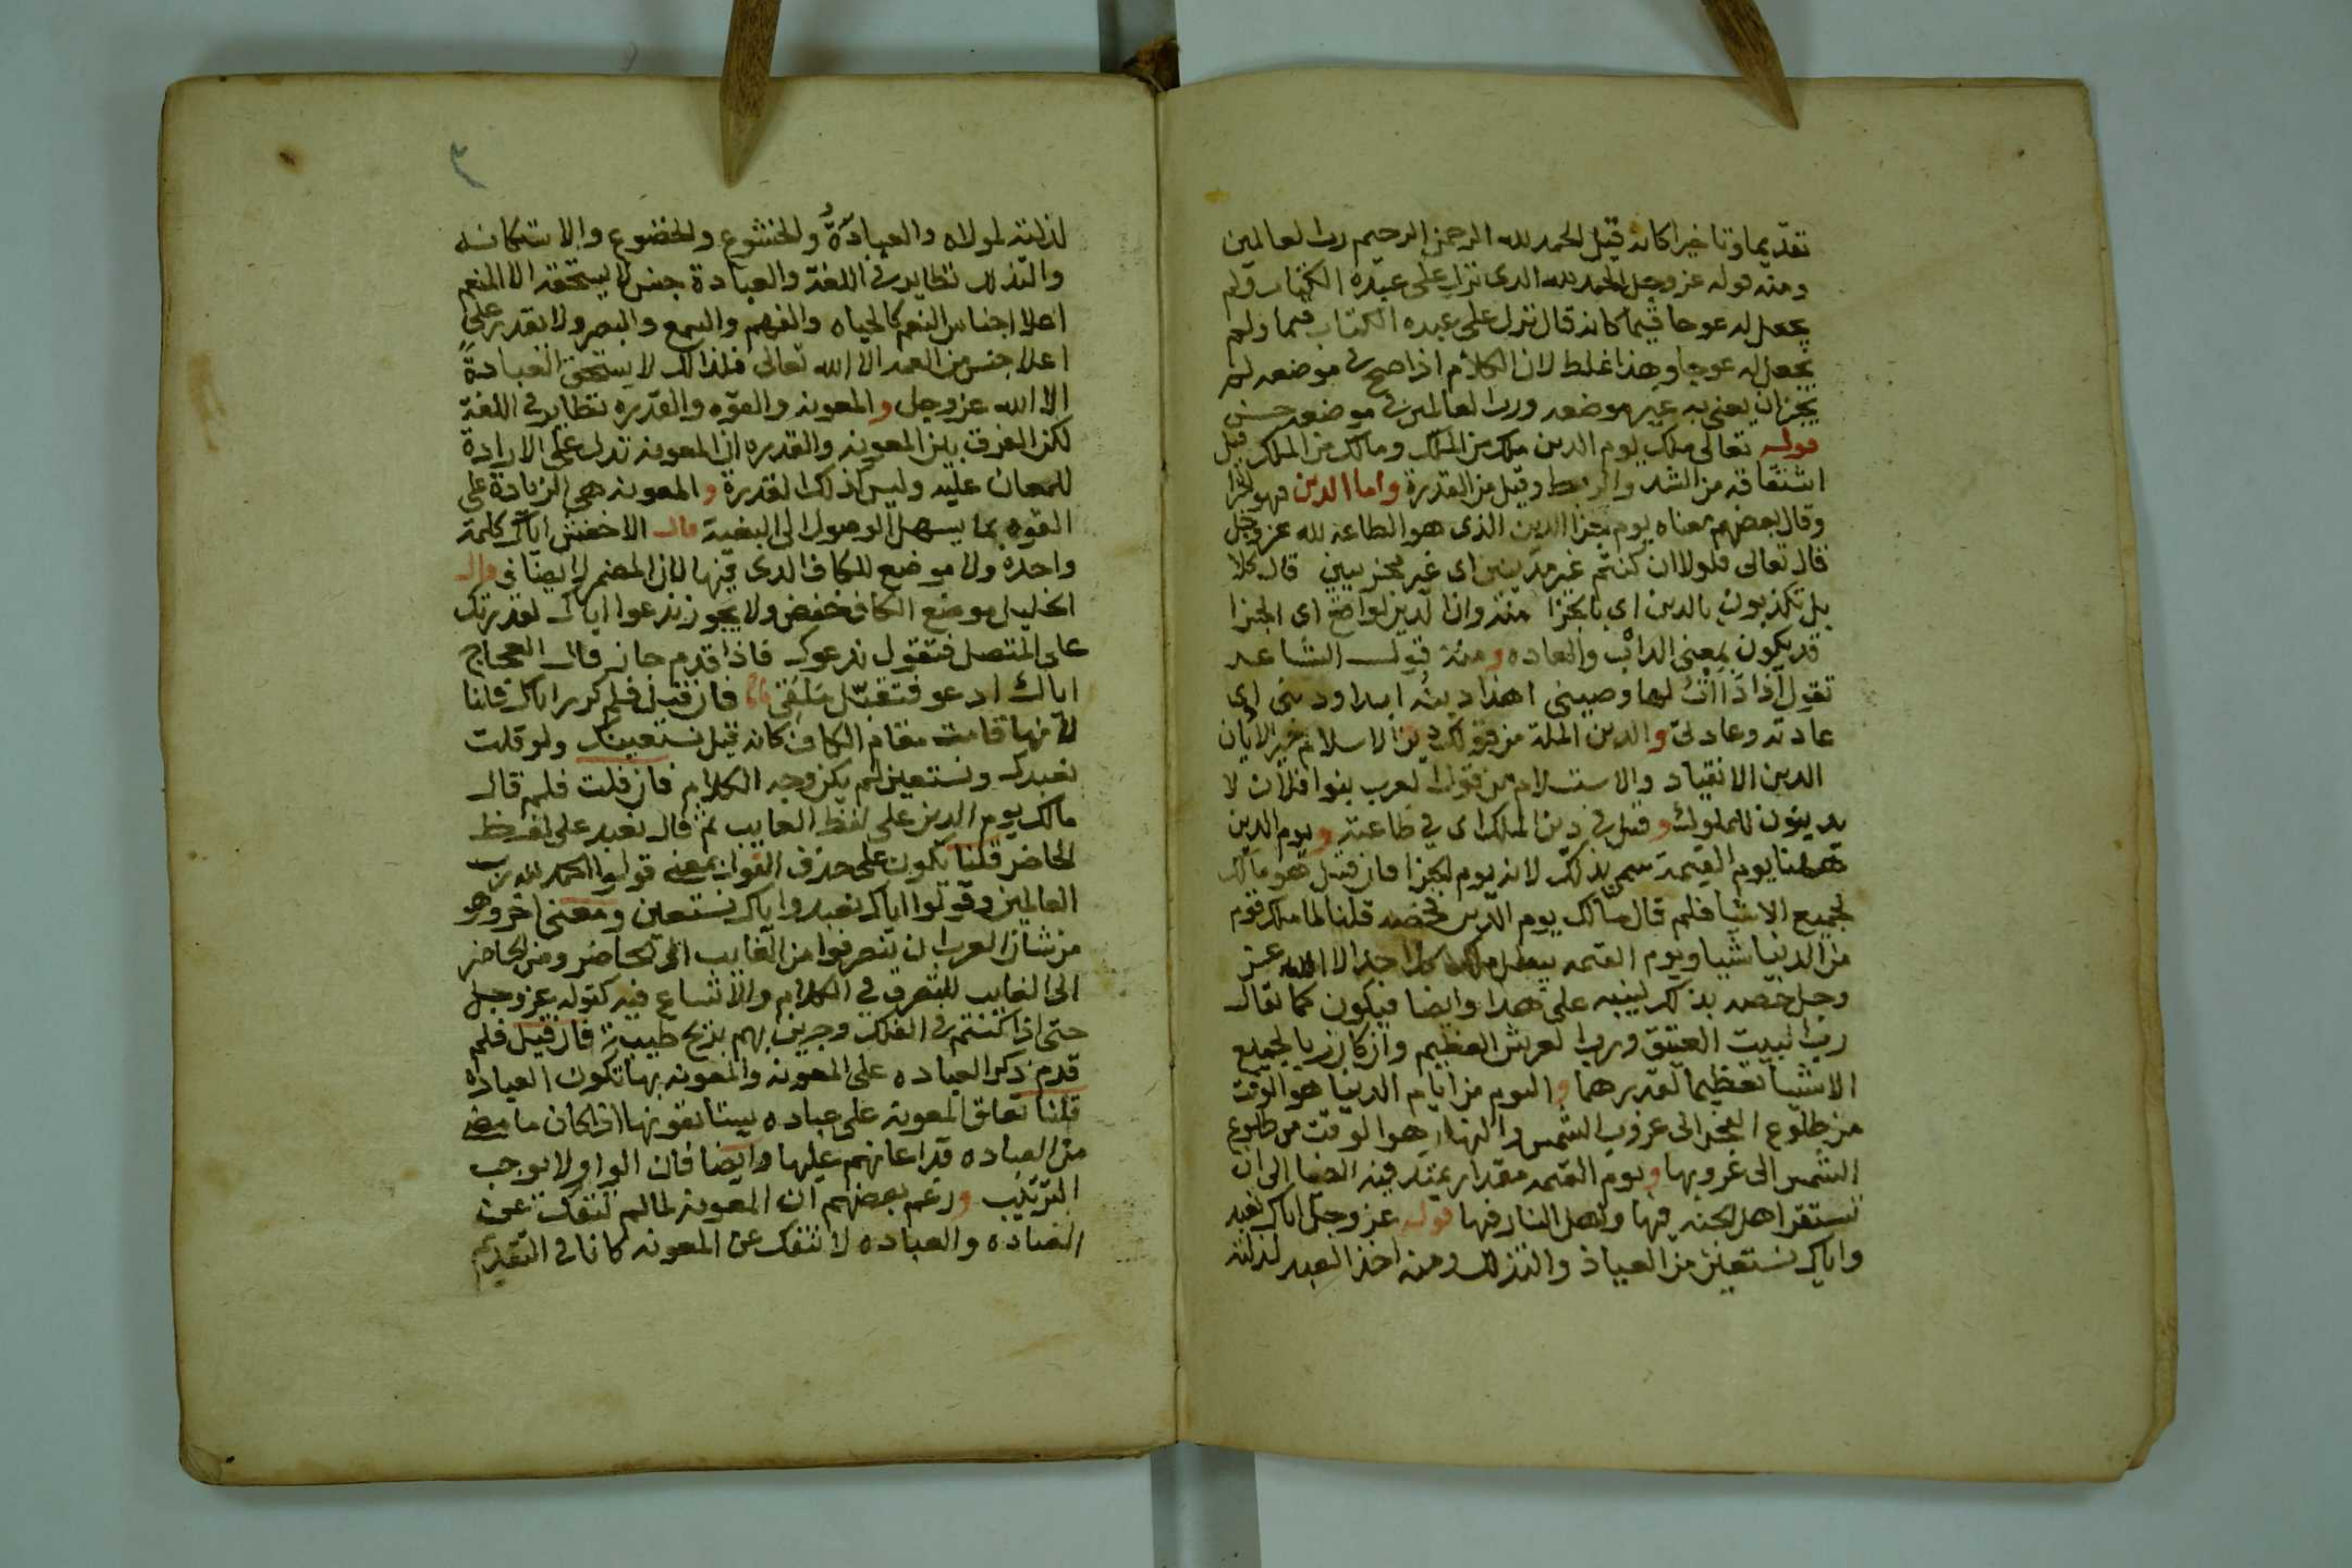 تقديما وتاخيرا كانه قيل الحمد لله الرحمن الرحيم رب العالمين
ومنه قوله عز وجل الحمد لله الدى نزل على عبده الكتاب ولم
يجعل له عوجا قيما كانه قال نزل على عبده الكتاب قيما ولم
يجعل له عوجا وهذا غلط لان الكلام اذا صح فى موضعه لم
يجز ان يعنى به غير موضعه ورب العالمين فى موضعه حسن
قوله تعالى ملك يوم الدين ملك من الملك ومالك من الملك قيل
اشتقاقه من الشد والربط وقيل من القدرة واما الدين فهو الجزا
وقال بعضهم معناه يوم جزا الدين الذى هو الطاعة لله عز وجل
قال تعالى فلولا ان كنتم غير مدينين اى غير مجزيين قال كلا
بل تكذبون بالدين اى بالجزا منه وان الدين لواقع اى الجزا
قد يكون بمعنى الداب والعاده ومنه قول الشاعر
تقول اذا دراات لها وضينى اهذا دينه ابدا ودينى اى
عادته وعادتى والدين الملة من قولك دين الاسلام خير الاديان
الدين الانقياد والاستسلام من قول العرب بنوا فلان لا
يدينون للملوك وقيل فى دين الملك اى في طاعته ويوم الدين
ههنا يوم القيمة سمى بذلك لانه يوم الجزا فان قيل هو مالك
لجميع الاشيا فلم قال مالك يوم الدين فخصه قلنا لما ملك قوم
من الدنيا شيا ويوم القيمه يبطل ملك كل احد الا الله عز
وجل خصه بذلك لينبه على هذا وايضا فيكون كما تقال
رب البيت العتيق ورب العرش العظيم وان كان ربا لجميع
الاشيا تعظيما لقدرهما واليوم من ايام الدنيا هو الوقت
من طلوع الفجر الى غروب الشمس والنهار هو الوقت من طلوع
الشمس الى غروبها ويوم القيمه مقدار يمتد فيه الضيا الى ان
تستقر اهل الجنه فيها واهل النار فيها قوله عز وجل اياك نعبد
واياك نستعين من العباد والتذلل ومنه اخذ العبد لذلته
لذلته لمولاه والعبادة والخشوع والخضوع والاستكانه
والتذلل نظاير فى اللغة والعبادة جنس لا يستحقه الا المنعم
اعلا اجناس النعم كالحياه والفهم والسمع والبصر ولا يقدر على
اعلا جنس من النعم الا الله تعالى فلذلك لا يستحق العبادة
الا الله عز وجل والمعونه والقوه والقدره نظاير فى اللغة
لكن الفرق بين المعونه والقدره ان المعونه تدل على الارادة
للمعان عليه وليس كذلك القدرة والمعونه هى الزيادة على
القوه بما يسهل الوصول الى البغية قال الاخفش اياك كلمة
واحده ولا موضع للكاف الدى فيها لان المضمر لا يضاف وقال
الخليل موضع الكاف خفض ولا يجوز ندعوا اياك لقدرتك
على المتصل فتقول ندعوك فاذا قدم جاز قال العجاج
اياك ادعو فتقبل ملقى فان قيل فلم كرر اياك قلنا
لانها قامت مقام الكاف كانه قيل نستعينك ولو قلت
نعبدك ونستعين لم يكن وجه الكلام فان قلت فلم قال
مالك يوم الدين على لفظ الغايب ثم قال نعبد على لفظ
الحاضر قلنا تكون على حذف القول بمعنى قولوا الحمد لله رب
العالمين وقولوا اياك نعبد واياك نستعين ومعنى اخر وهو
من شان العرب ان يتصرفوا من الغايب الى الحاضر ومن الحاضر
الى الغايب للتصرف في الكلام والاتساع فيه كقوله عز وجل
حتى اذا كنتم فى الفلك وجرين بهم بريح طيبة فان قيل فلم
قدم ذكر العباده على المعونه والمعونه بها تكون العباده
قلنا تعلق المعونة على عباده يستانفونها اذا كان ما مضى
من العباده قد اعانهم عليها وايضا فان الواو لا توجب
الترتيب وزعم بعضهم ان المعونه لما لم تنفك عن
العباده والعباده لا تنفك عن المعونه كانا فى التقديم